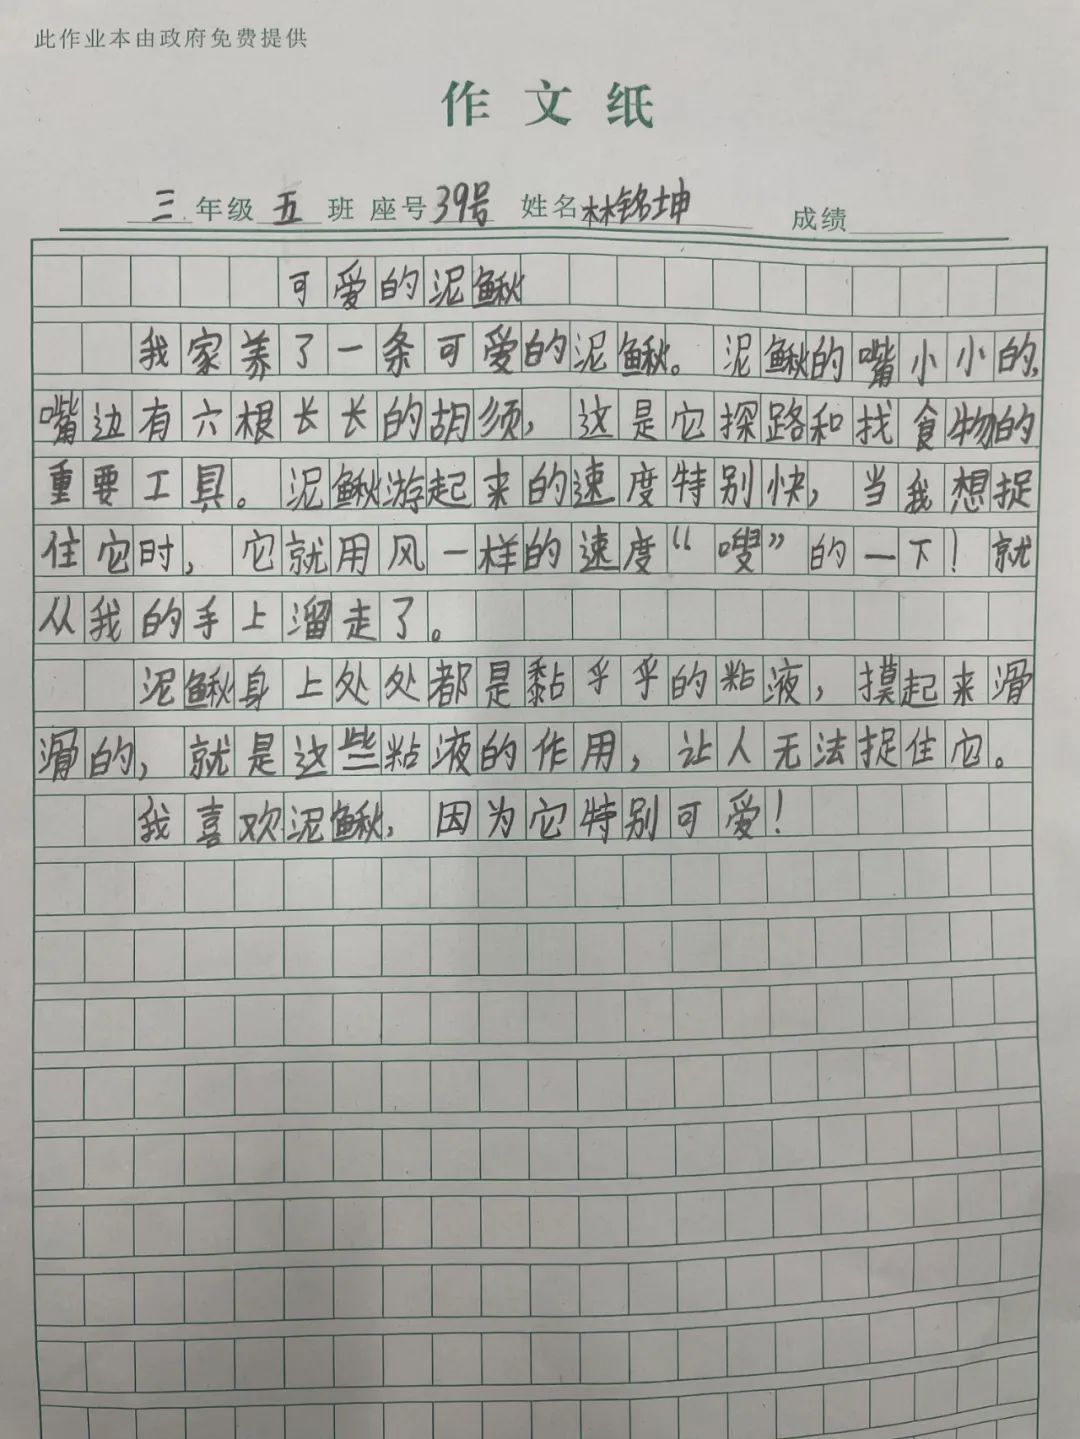 此作业本由政府免费提供
作文纸
三年级五班 座号39号 姓名林铭坤 成绩
可爱的泥鳅
我家养了一条可爱的泥鳅。泥鳅的嘴小小的,
嘴边有六根长长的胡须,这是它探路和找食物的
重要工具。泥鳅游起来的速度特别快,当我想捉
住它时,它就用风一样的速度“嗖”的一下!就
从我的手上溜走了。
泥鳅身上处处都是黏乎乎的粘液,摸起来滑
滑的,就是这些粘液的作用,让人无法捉住它。
我喜欢泥鳅,因为它特别可爱!